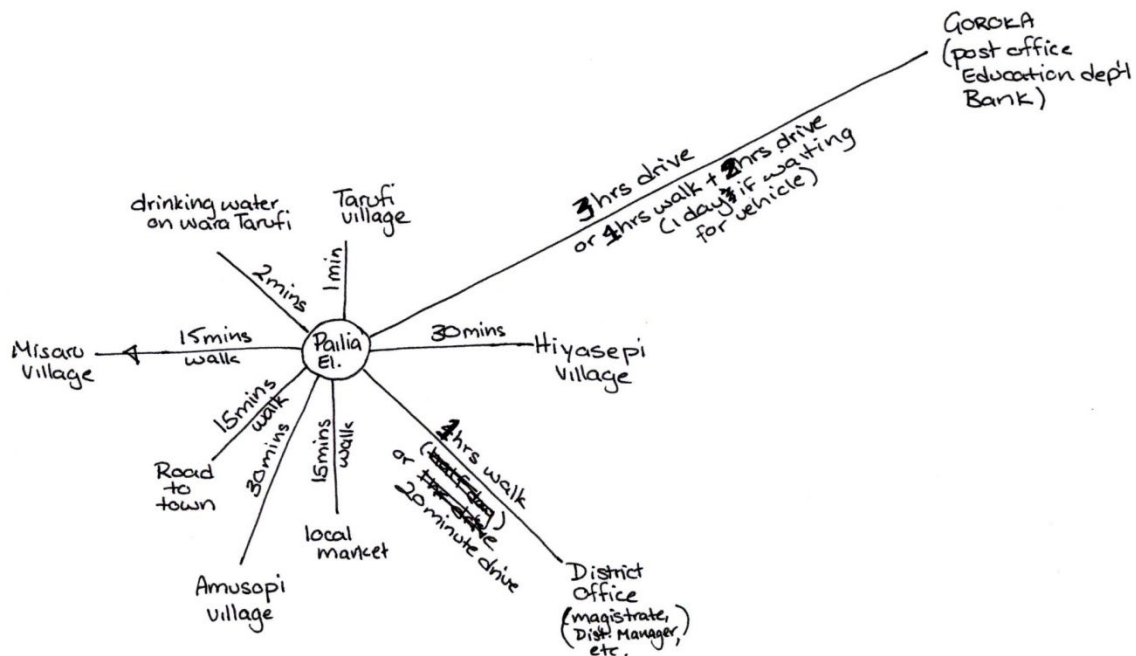 GOROKA
(post office
Education dep't
Bank)
3hrs drive
or 4hrs walk + 2hrs drive
(1 day if waiting
for vehicle)
drinking water
on wara Tarufi
2mins
Tarufi
village
1min
Misaru
village
15mins
walk
Pailia
El.
30mins
Hiyasepi
village
15mins
walk
Road
to
town
30mins
Amusapi
village
15mins
walk
local
market
4hrs walk
or
20 minute drive
District
Office
(magistrate,
Dist. Manager,
etc.